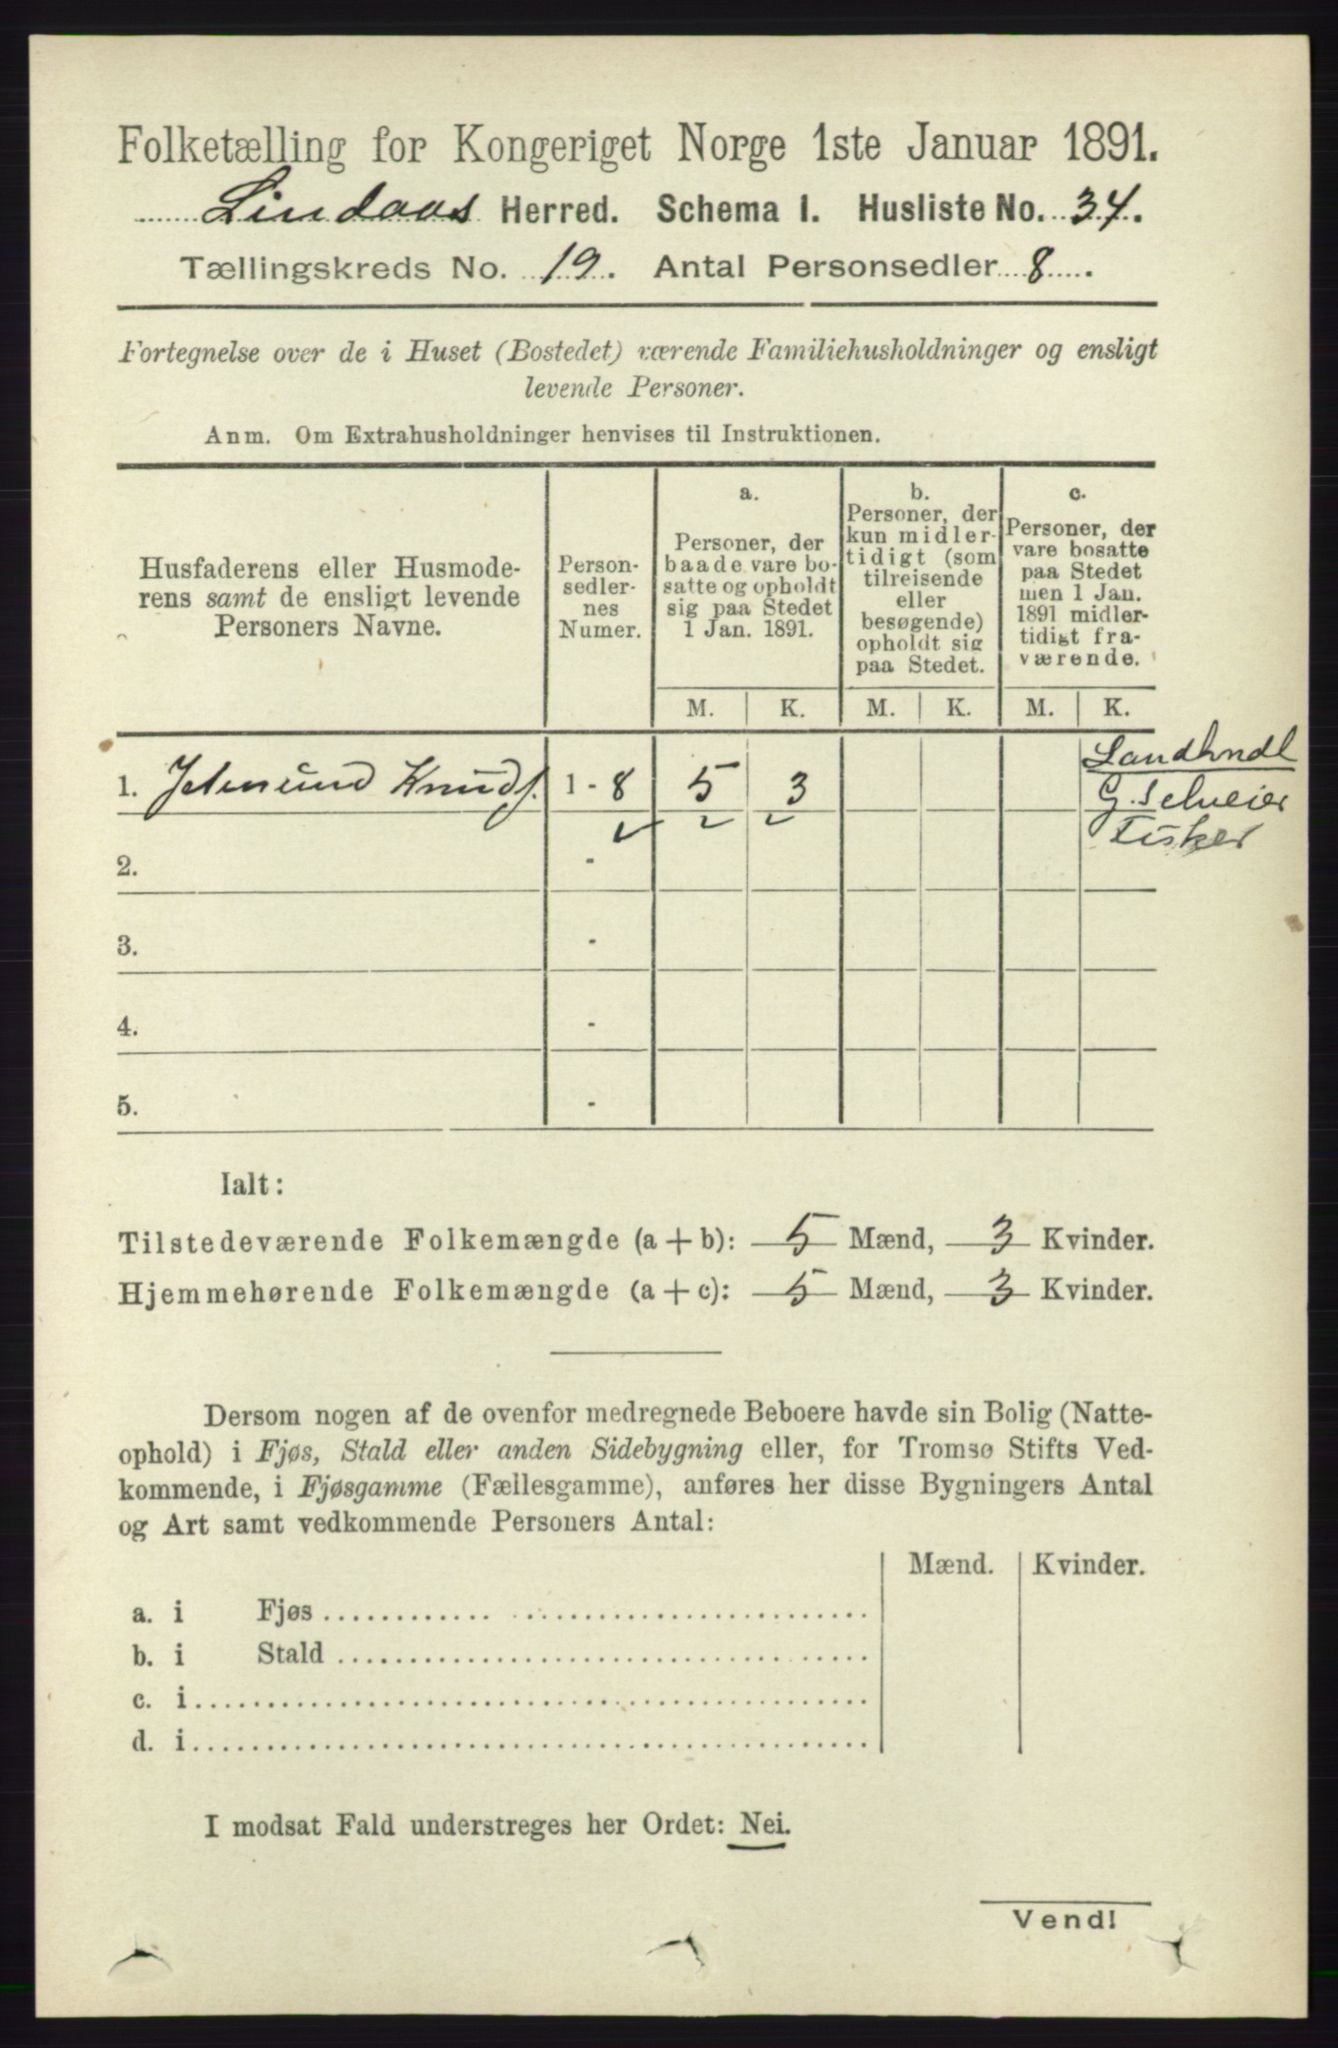 Folketælling for Kongeriget Norge 1ste Januar 1891.
Lindaas Herred. Schema I. Husliste No. 34.
Tællingskreds No. 19. Antal Personsedler 8.
Fortegnelse over de i Huset (Bostedet) værende Familiehusholdninger og ensligt
levende Personer.
Anm. Om Extrahusholdninger henvises til Instruktionen.
Husfaderens eller Husmode-
rens samt de ensligt levende
Personers Navne.
Person-
sedler-
nes
Numer.
a.
Personer, der
baade vare bo-
satte og opholdt
sig paa Stedet
1 Jan. 1891.
b.
Personer, der
kun midler-
tidigt (som
tilreisende
eller
besøgende)
opholdt sig
paa Stedet.
c.
Personer, der
vare bosatte
paa Stedet
men 1 Jan.
1891 midler-
tidigt fra-
værende.
M. K. M. K. M. K.
1. Jetmund Knuds. 1 - 8 5 3
Landhndl
G. Selveier
Fisker
2. -
3. -
4. -
5. -
Ialt:
Tilstedeværende Folkemængde (a + b): 5 Mænd, 3 Kvinder.
Hjemmehørende Folkemængde (a + c): 5 Mænd, 3 Kvinder.
Dersom nogen af de ovenfor medregnede Beboere havde sin Bolig (Natte-
ophold) i Fjøs, Stald eller anden Sidebygning eller, for Tromsø Stifts Ved-
kommende, i Fjøsgamme (Fællesgamme), anføres her disse Bygningers Antal
og Art samt vedkommende Personers Antal:
Mænd. Kvinder.
a. i Fjøs
b. i Stald
c. i
d. i
I modsat Fald understreges her Ordet: Nei.
Vend!